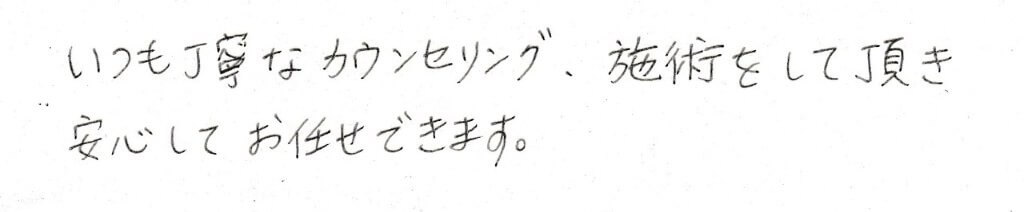 いつも丁寧なカウンセリング、施術をして頂き
安心してお任せできます。